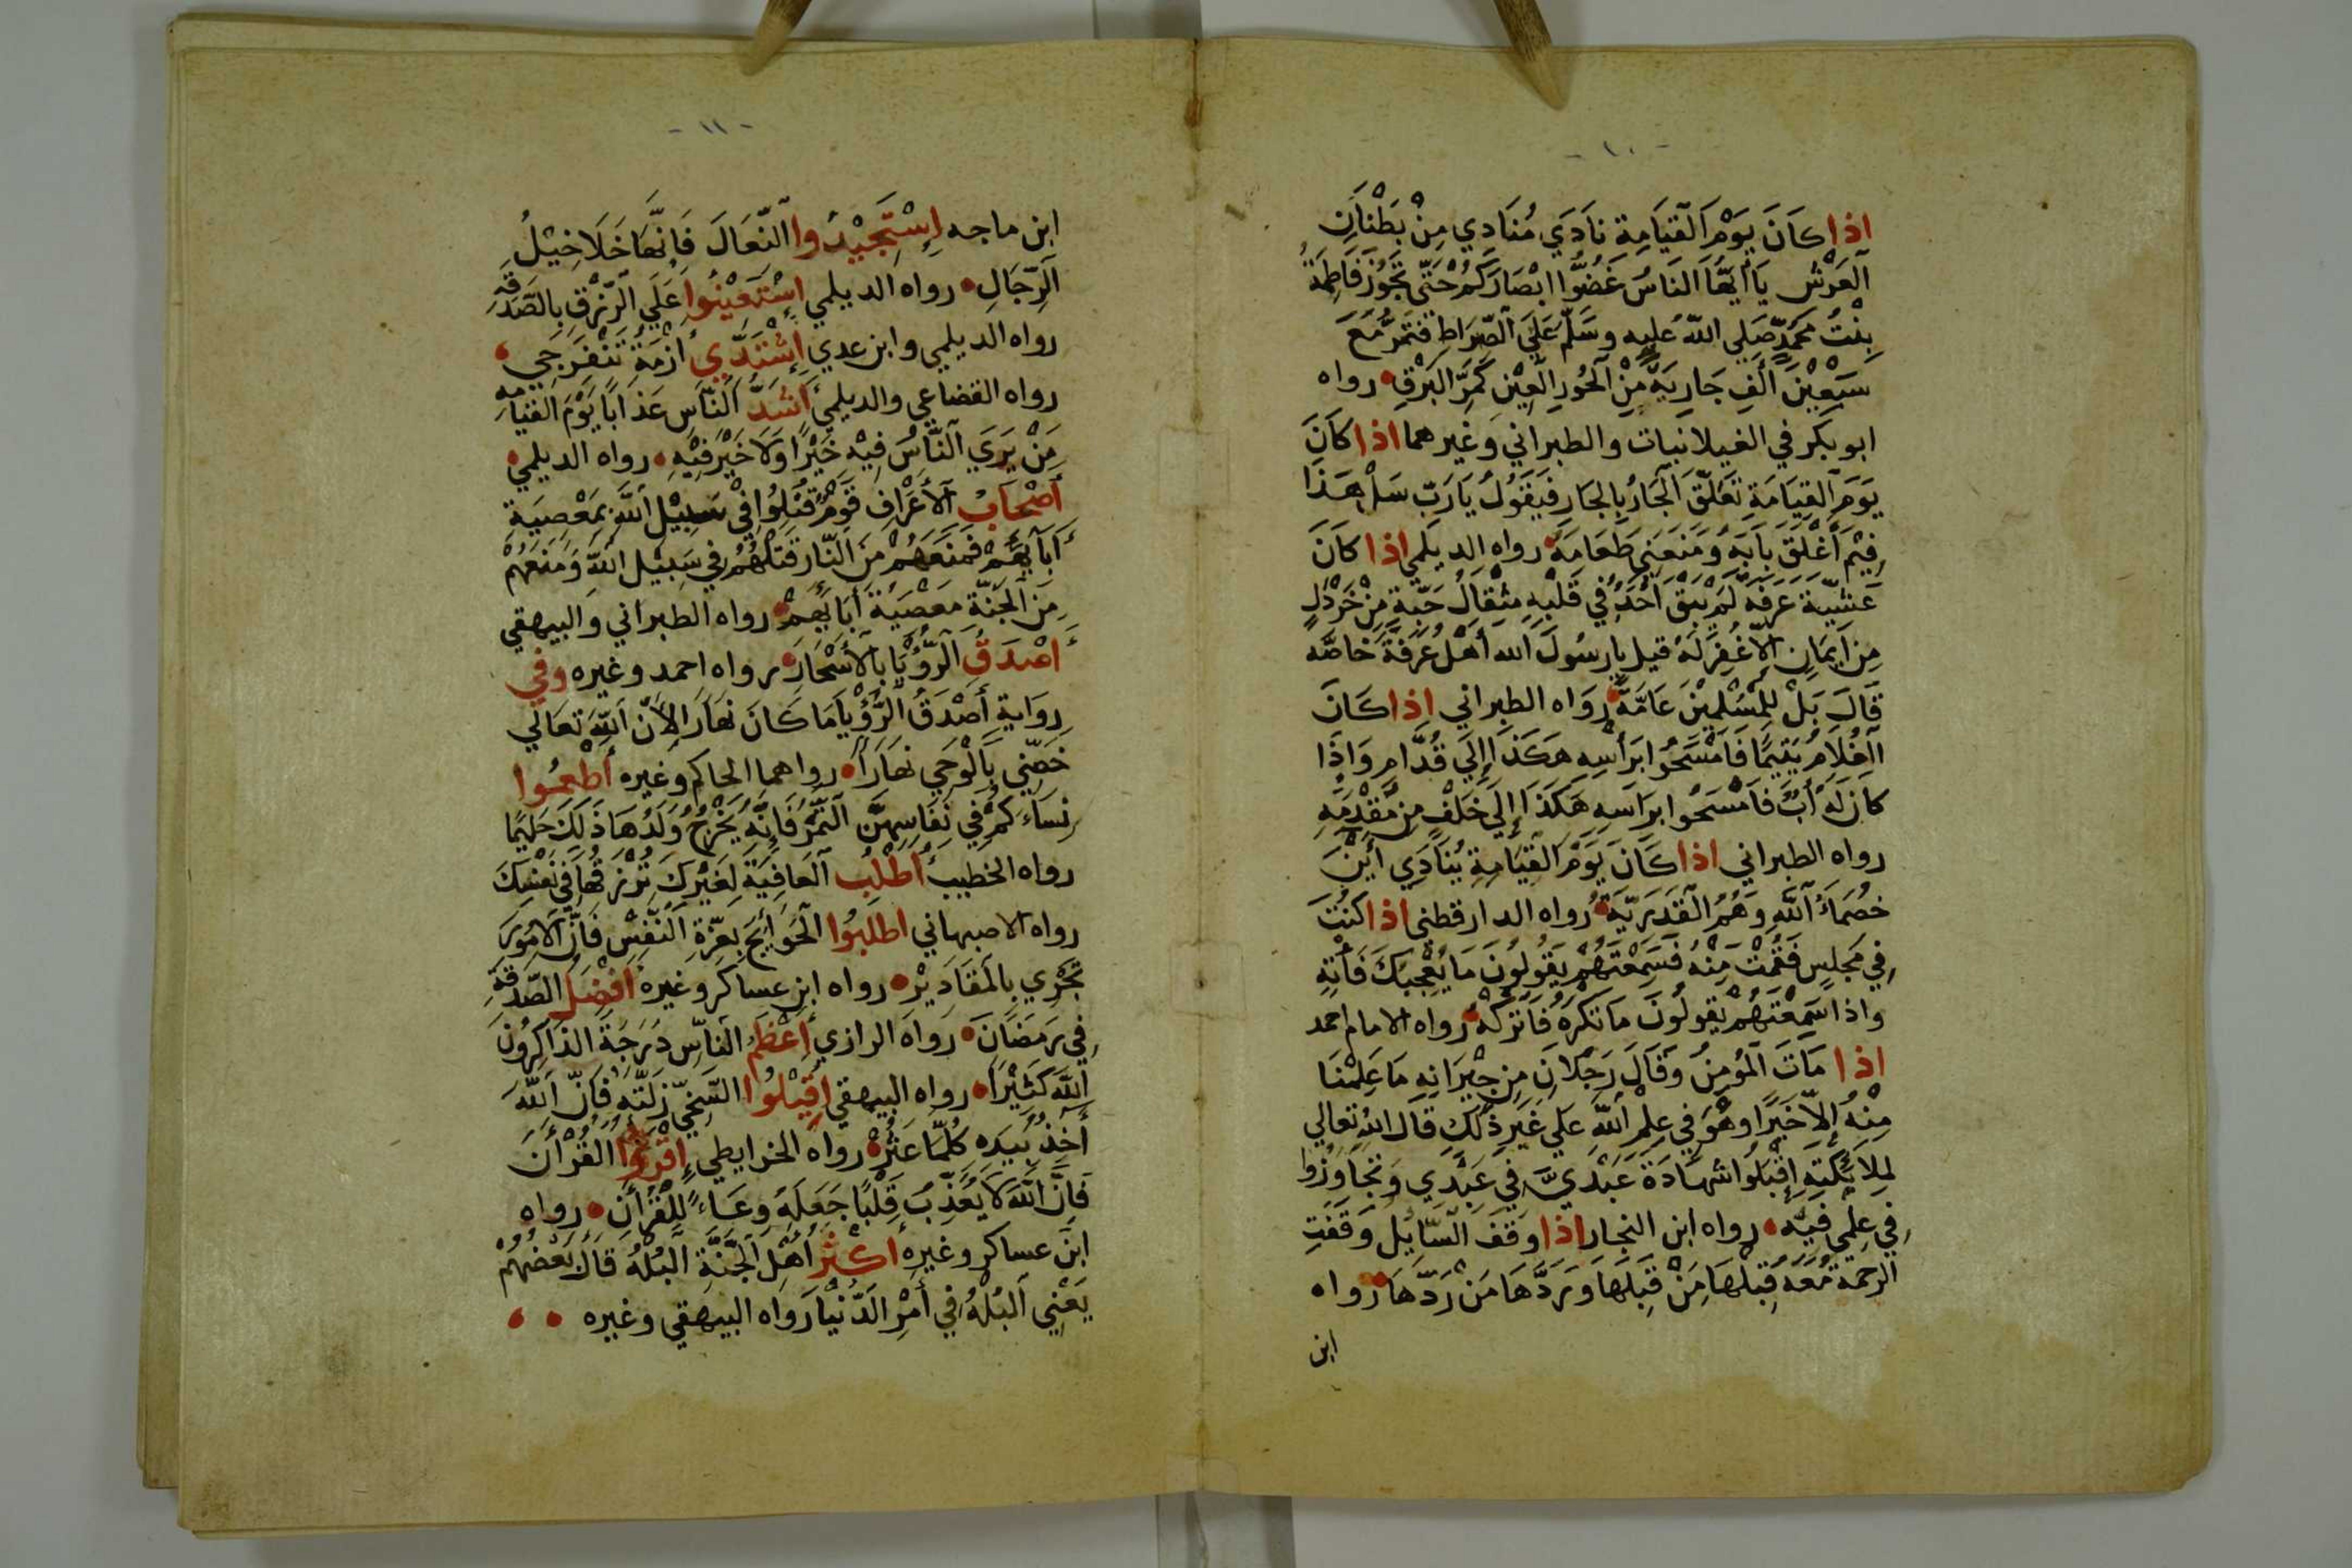 - ١٠ -
اذا كَانَ يَوْمَ الْقِيَامَةِ نَادَي مُنَادِي مِنْ بَطْنَانِ
الْعَرْشِ يَا أَيُّهَا النَاسُ غَضُّوا ابْصَارَكُمْ حَتّي تَجُوزَ فَاطِمَةُ
بِنْتُ مُحَمَّدٍ صَلي اللّه عليه وسَلّم عَلَي الصِّرَاطِ فَتَمُرُّ مَعَ
سَبْعِيْنَ أَلْفِ جَارِيَةٍ مِنْ الْحُورِ الْعِيْنِ كَمَرِّ الْبَرْقِ رواه
ابو بكر في الغيلانيات والطبراني وغيرهما اذا كَانَ
يَوْمَ الْقِيَامَةِ تَعَلَّقَ الْجَارُ بِالْجَارِ فَيَقُولُ يَارَبّ سَلْ هَذَا
فِيْمَ أَغْلَقَ بَابَهُ وَمَنَعَنِي طَعَامَهُ رواه الديلمي اذا كَانَ
عَشِيَّةَ عَرَفَةَ لَمْ يَبْقَ أَحَدٌ فِي قَلْبِهِ مِثْقَالُ حَبَّةٍ مِنْ خَرْدَلٍ
مِنْ اِيْمَانٍ الاّ غُفِرَ لَهُ قيل يا رسُولَ الله أَهْلُ عَرَفَةَ خَاصَّه
قَالَ بَلْ لِلْمُسْلِمِيْنَ عَامَّةً رَوَاه الطبراني اذا كَانَ
الْغُلَامُ يَتِيْمًا فَامْسَحُوا بِرَأْسِهِ هَكَذَا إِلَي قُدَّامِ وَاذَا
كَانَ لَهُ أَبٌ فَامْسَحُوا بِرَاسِهِ هَكَذَا إِلَي خَلْفٍ مِنْ مُقَدَّمِهِ
رواه الطبراني اذا كَانَ يَوْمَ الْقِيَامَةِ يُنَادَي أَيْنَ
خُصَمَاءُ اللّهِ وَهُمُ الْقَدَرِيَّةُ رُواه الدارقطني اذا كُنْتَ
فِي مَجْلِسٍ فَقُمْتَ مِنْهُ فَسَمِعْتَهُمْ يَقُولُونَ مَا يُعْجِبُكَ فَأْتِهِ
واذا سَمِعْتَهُمْ يَقُولُونَ مَا تَكْرَهُ فَاتْرُكْهُ رواه الامام احمد
اذا مَاتَ الْمُؤْمِنُ وَقَالَ رَجُلَانِ مِنْ جِيْرَانِهِ مَا عَلِمْنَا
مِنْهُ إِلاّ خَيْرًا وهْوَ فِي عِلْمِ اللّهِ عَلَي غَيْرِ ذَلِكَ قَالَ اللهُ تعالي
لِمَلَائِكَتِهِ اقْبَلُوا شَهَادَةَ عَبْدَيَّ فِي عَبْدِي وَتَجَاوَزُوا
فِي عِلْمِي فِيْهِ رواه ابن النجار اذا وَقَفَ السَّايِلُ وَقَفَتِ
الرَحْمَةُ مَعَهُ قَبِلَهَا مَنْ قَبِلَهَا وَرَدَّهَا مَنْ رَدَّهَا رواه
ابن
- ١١ -
ابن ماجه إِسْتَجِيْدُوا النِّعَالَ فَانَّهَا خَلَاخِيْلُ
الرِّجَالِ رواه الديلمي إِسْتَعِيْنُوا عَلَي الرِّزْقِ بِالصَّدَقَةِ
رواه الديلمي وابن عدي إِشْتَدِّي أَزْمَةُ تَنْفَرِجِي
رواه القضاعي والديلمي أَشَدُّ النَّاسِ عَذَابًا يَوْمَ الْقِيَامَةِ
مَنْ يَرَي النَّاسُ فِيْهِ خَيْرًا وَلَا خَيْرَ فِيْهِ رواه الديلمي
أَصْحَابُ الْأَعْرَافِ قَوْمٌ قُتِلُوا فِي سَبِيْلِ اللّهِ بِمَعْصِيَةِ
أَبَآئِهِمْ فَمَنَعَهُمْ مِنَ النَّارِ قَتْلُهُمْ فِي سَبِيْلِ اللّهِ وَمَنَعَهُمْ
مِنَ الْجَنَّةِ مَعْصِيَةُ أَبَائِهِمْ رواه الطبراني والبيهقي
أَصْدَقُ الرُّؤْيَا بِالْأَسْحَارِ رواه احمد وغيره وفي
رِوَايةٍ أَصْدَقُ الرُّؤْيَا مَا كَانَ نَهَارًا لِأَنَّ اللّهَ تَعَالَي
خَصَّنِي بِالْوَحِي نَهَارًا رواهما الحاكم وغيره أَطْعِمُوا
نِسَاءَكُمْ فِي نِفَاسِهِنَّ التَّمْرَ فَانِّهُ يَخْرُجُ وَلَدُهَا ذَلِكَ حَلِيْمًا
رواه الخطيب أُطْلُبِ الْعَافِيَةَ لِغَيْرِكَ تُرْزَقُهَا فِي نَفْسِكَ
رواه الاصبهاني اطْلُبُوا الْحَوَائِجَ بِعِزَّةِ النَّفْسِ فَانَّ الْامُورَ
تَجْرِي بِالْمَقَادِيْرِ رواه ابن عساكر وغيره أَفْضَلُ الصَّدَقَةِ
فِي رَمَضَانَ رَوَاه الرازي أَعْظَمُ النَّاسِ دَرَجَةً الذَاكِرُونَ
اللّهَ كَثِيْرًا رواه البيهقي إِقْبَلُوا السَّخِيَّ زَلَّتَهُ فَانَّ اللّهَ
أَخِذٌ بِيَدِهِ كُلَّمَا عَثَرَ رواه الخرايطي إِقْرَؤُا الْقُرْأَنَ
فَانَّ اللّهَ لَا يُعَذِّبُ قَلْبًا جَعَلَهُ وِعَاءً لِلْقُرْأَنِ رواه
ابن عساكر وغيره أَكْثَرُ أَهْلِ الْجَنَّةِ الْبُلْهُ قَالَ بَعْضُهُمْ
يَعْنِي الْبُلْهُ فِي أَمْرِ الدّنْيَا رَواه البيهقي وغيره